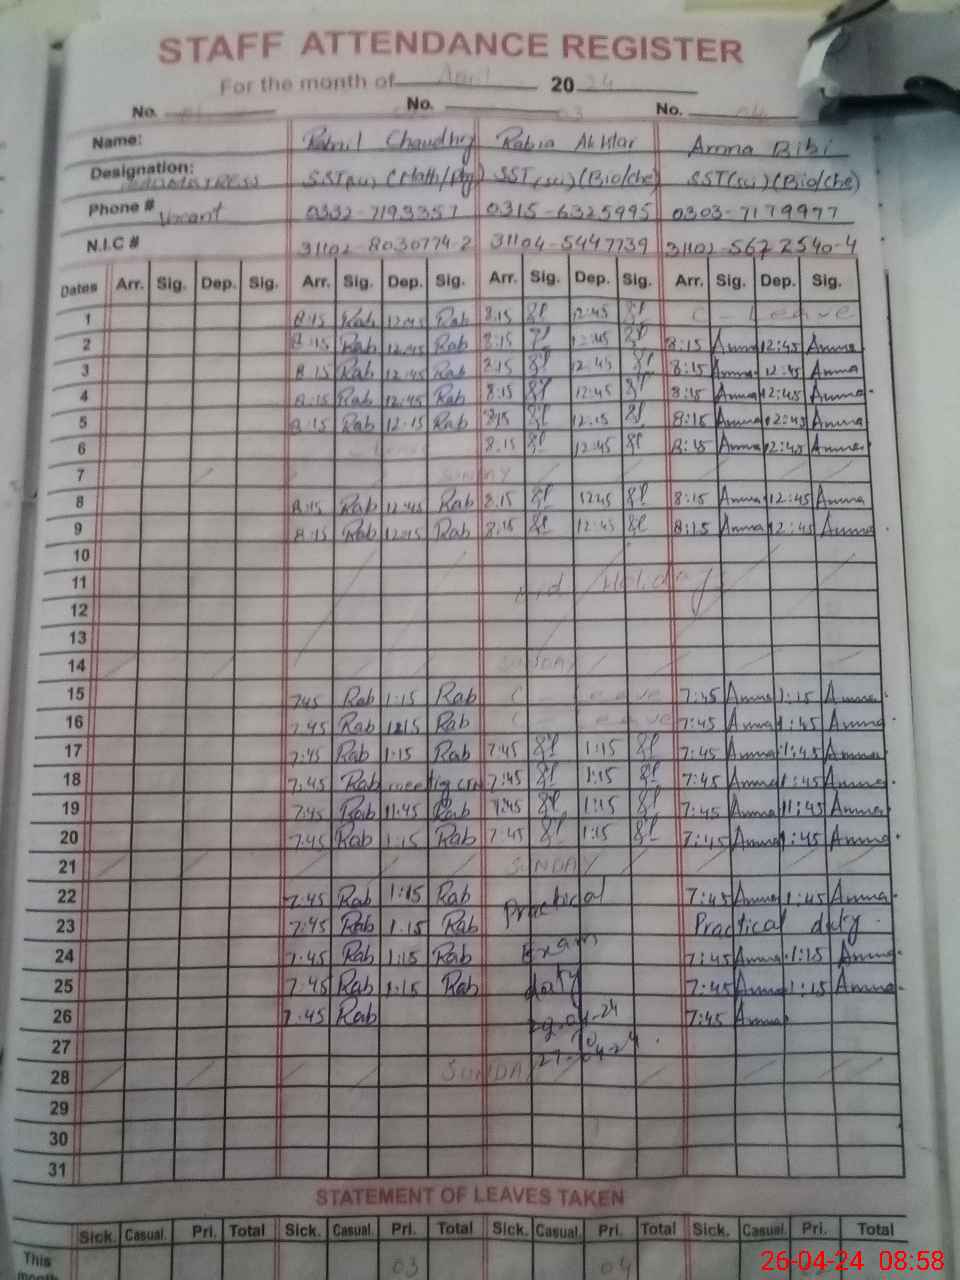 STAFF ATTENDANCE REGISTER
For the month of April 2024
No. No. 03 No. 04
Name: Chaudhry Rabia Akhtar Amna Bibi
Designation: SST(sci) (Math/Phy) SST(sci) (Bio/che) SST(sci) (Bio/che)
Phone # Vacant 0332-7193357 0315-6325995 0303-7179977
N.I.C # 31102-8030774-2 31104-5447739 31102-5672540-4
Dates Arr. Sig. Dep. Sig. Arr. Sig. Dep. Sig. Arr. Sig. Dep. Sig. Arr. Sig. Dep. Sig.
1 8:15 Rab 12:45 Rab 8:15 12:45 C - Leave
2 8:15 Rab 12:45 Rab 8:15 12:45 8:15 Amna 12:45 Amna
3 8:15 Rab 12:45 Rab 8:15 12:45 8:15 Amna 12:45 Amna
4 8:15 Rab 12:45 Rab 8:15 12:45 8:15 Amna 12:45 Amna
5 8:15 Rab 12:15 Rab 8:15 12:15 8:15 Amna 12:45 Amna
6 8:15 12:45 8:15 Amna 12:45 Amna
7 SUNDAY
8 8:15 Rab 12:45 Rab 8:15 1245 8:15 Amna 12:45 Amna
9 8:15 Rab 12:15 Rab 8:15 12:45 8:15 Amna 12:45 Amna
10
11 Eid Holidays
12
13
14 SUNDAY
15 745 Rab 1:15 Rab C - Leave 7:45 Amna 1:15 Amna
16 7:45 Rab 1215 Rab C - Leave 7:45 Amna 1:45 Amna
17 7:45 Rab 1:15 Rab 7:45 1:15 7:45 Amna 1:45 Amna
18 7:45 Rab meeting 7:45 1:15 7:45 Amna 1:45 Amna
19 7:45 Rab 11:45 Rab 7:45 1:15 7:45 Amna 11:45 Amna
20 7:45 Rab 1:15 Rab 7:45 1:15 7:45 Amna 1:45 Amna
21 SUNDAY
22 7:45 Rab 1:15 Rab Practical 7:45 Amna 1:45 Amna
23 7:45 Rab 1:15 Rab Practical duty
24 7:45 Rab 1:15 Rab Exam 7:45 Amna 1:15 Amna
25 7:45 Rab 1:15 Rab duty 7:45 Amna 1:15 Amna
26 7:45 Rab 7:45 Amna
27 To 27-04-24
28 SUNDAY
29
30
31
STATEMENT OF LEAVES TAKEN
Sick. Casual. Pri. Total Sick. Casual. Pri. Total Sick. Casual. Pri. Total Sick. Casual. Pri. Total
This 03 04
month
26-04-24 08:58